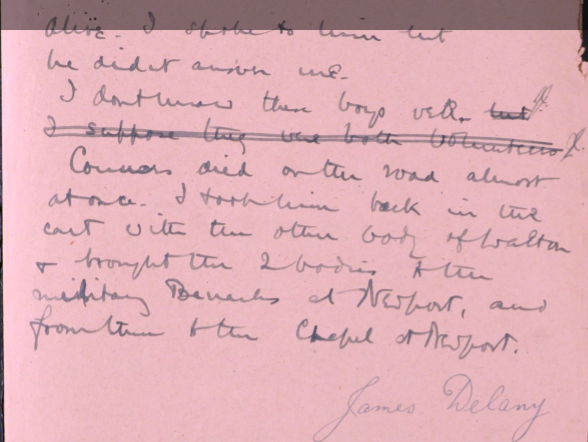 alive. I spoke to him but
he didnt answer me.
I dont know these boys well. but
I suppose they were both Volunteers
Connors died on the road almost
at once. I took him back in the
cart with the other body of Walton
& brought the 2 bodies to the
military Barracks at Newport, and
from there to the Chapel at Newport.
James Delany